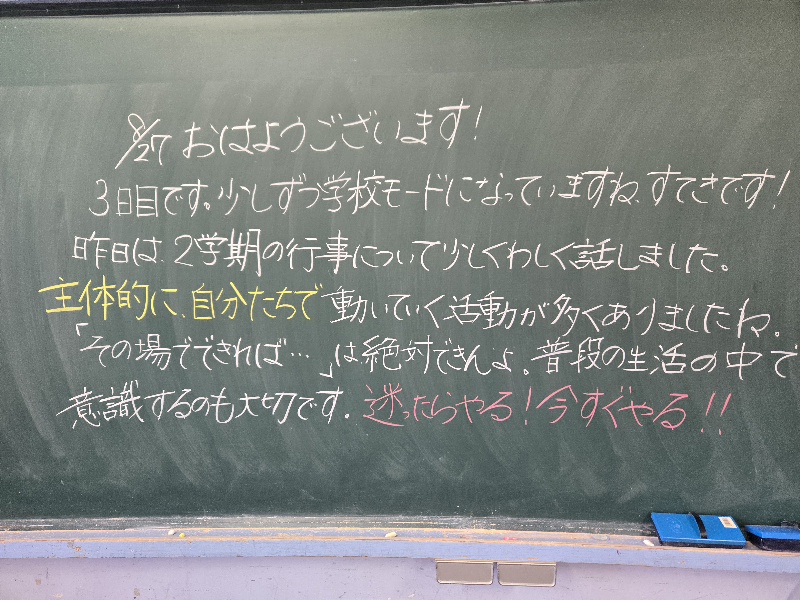 8/27 おはようございます!
3日目です。少しずつ学校モードになっていますね、すてきです!
昨日は、2学期の行事について少しくわしく話しました。
主体的に、自分たちで動いていく活動が多くありましたね。
「その場でできれば…」は絶対できんよ。普段の生活の中で
意識するのも大切です。迷ったらやる!今すぐやる!!